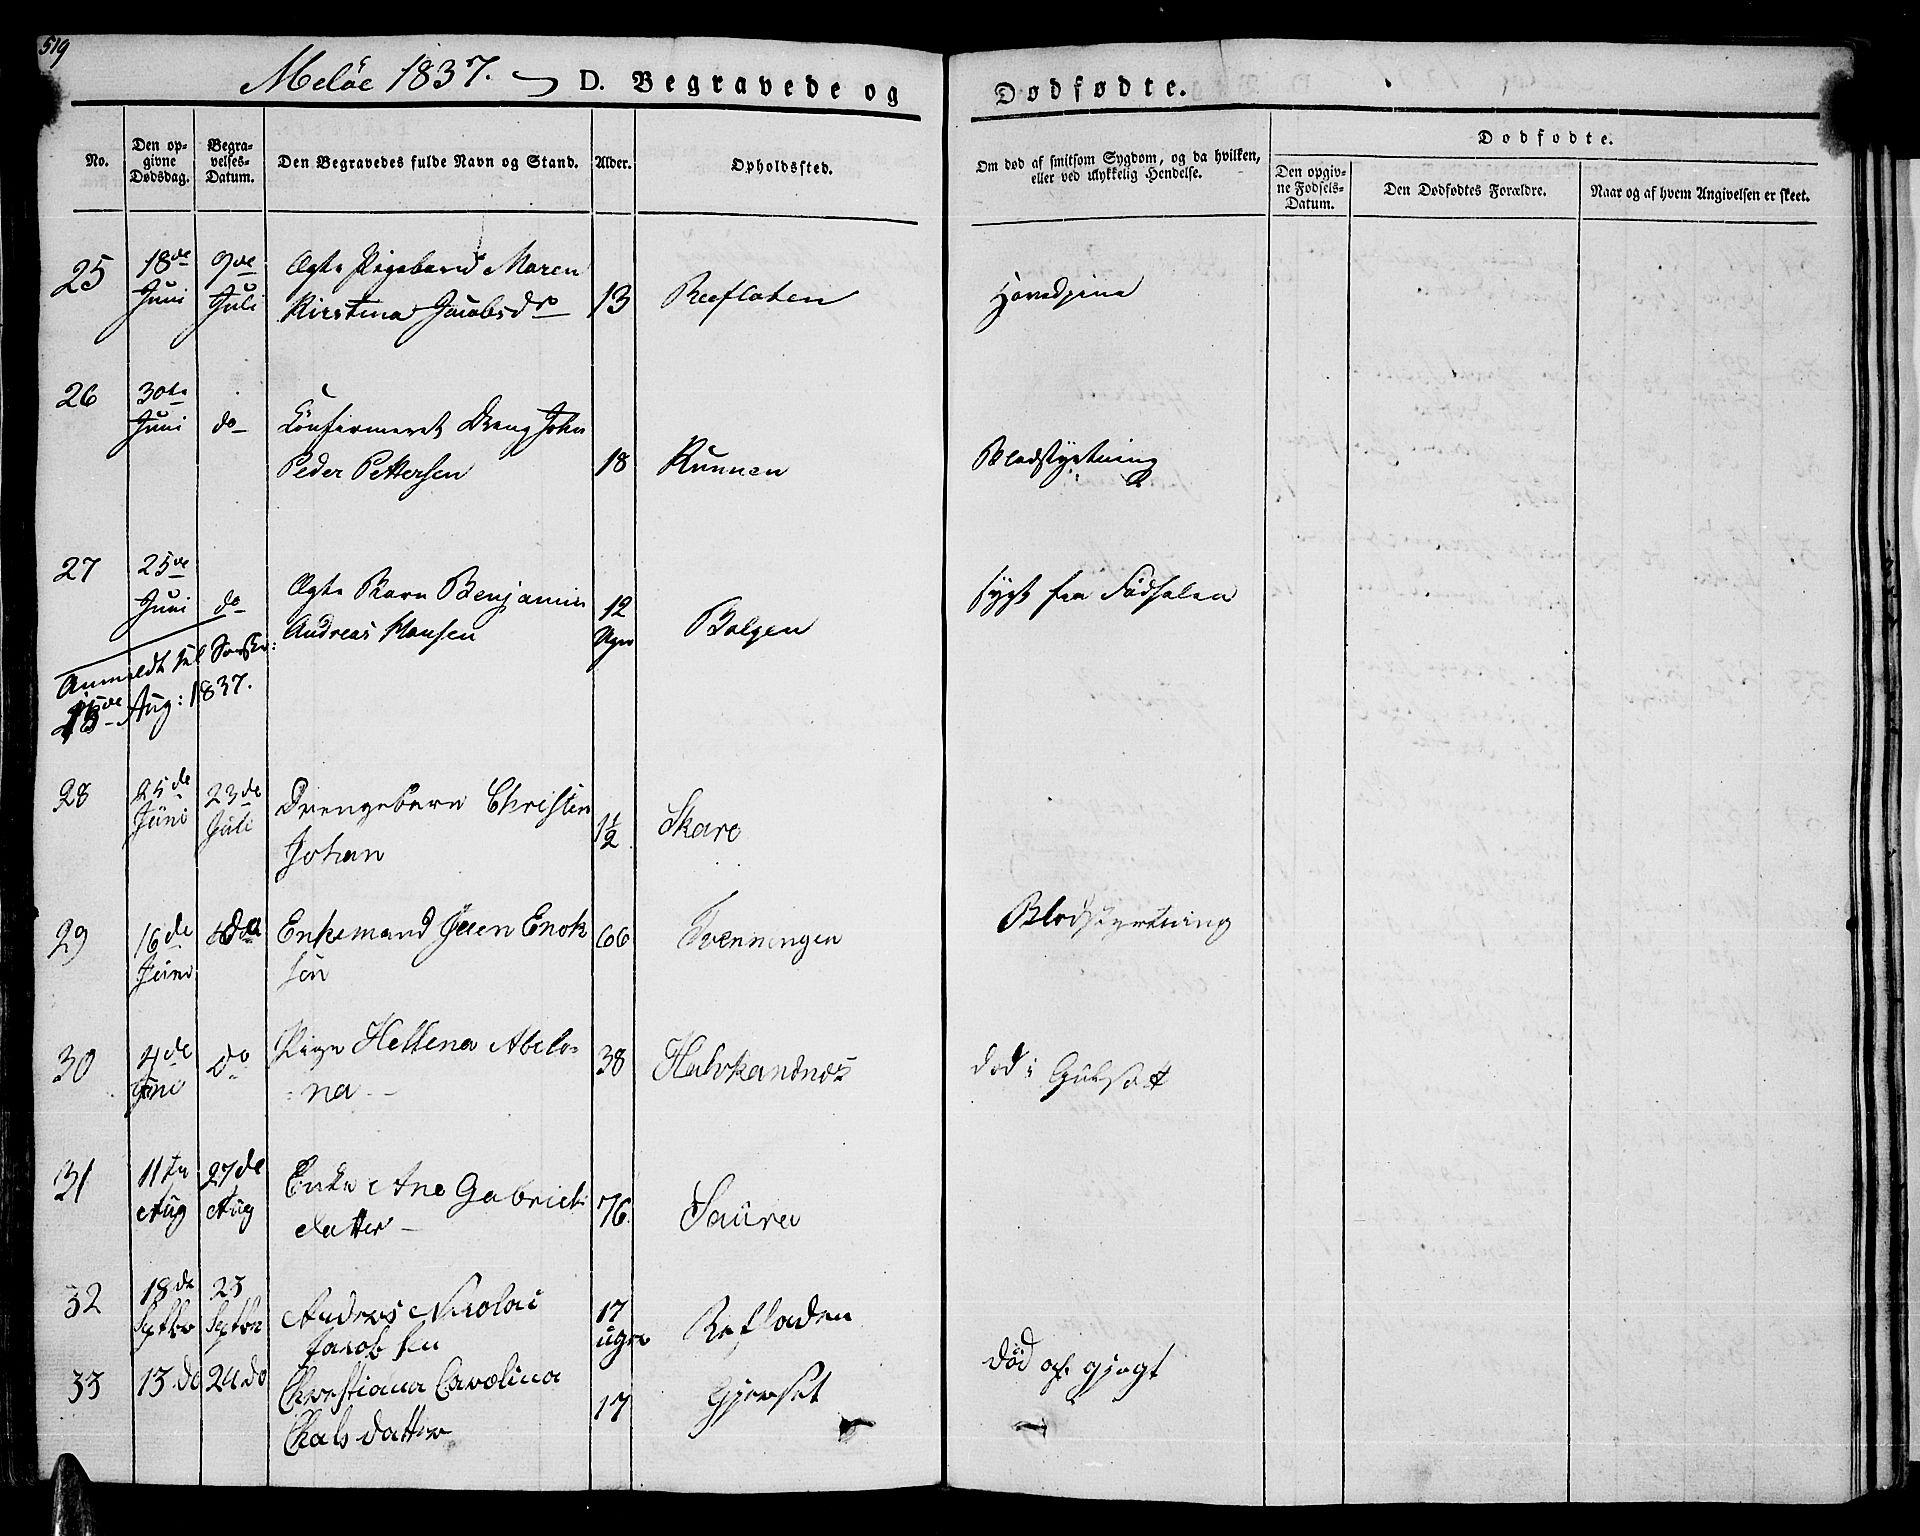 519
Meløe 1837. D. Begravede og Dødfødte.
No.
Den opgivne Dødsdag.
Begravelses-Datum.
Den Begravedes fulde Navn og Stand.
Alder.
Opholdssted.
Om død af smitsom Sygdom, og da hvilken, eller ved ulykkelig Hendelse.
Dødfødte.
Den opgivne Fødsels-Datum.
Den Dødfødtes Forældre.
Naar og af hvem Angivelsen er skeet.
25 18de 9de Ægte Pigebarn Maren
Juni Juli Kirstina Jacobsdr 13 Reefloten Hovedpine
26 30te
Juni do Confirmeret Dreng John
Peder Pettersen 18 Kunnen Blodstyrtning
27 25de
Juni do Ægte Barn Benjamin 12 Bolgen sygt fra Fødselen
Andreas Hansen Uger
Anmeldt til
15de Aug: 1837.
28 25de 23de Drengebarn Christen
Juni Juli Johan 1½ Skare
29 16de do Enkemand Jeen Enok 66 Tvenningen Blodstyrtning
Juni sen
30 4de do Pige Hellena Abelo= 38 Halvkandnes død i Gulsott
Juni =na
31 11te 27de Enke Ane Gabriels 76 Saura
Aug Aug datter
32 18de 23 Anders Nicolai 17 Refladen
Septbr Septbr Jacobsen uger
33 13 do 24 do Christiana Carolina 17 Gjerset død af gjegt
Kals datter